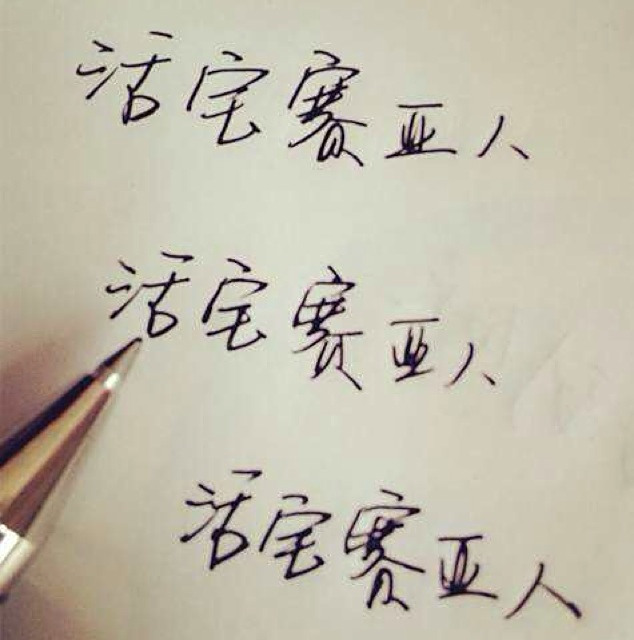 活宝赛亚人
活宝赛亚人
活宝赛亚人